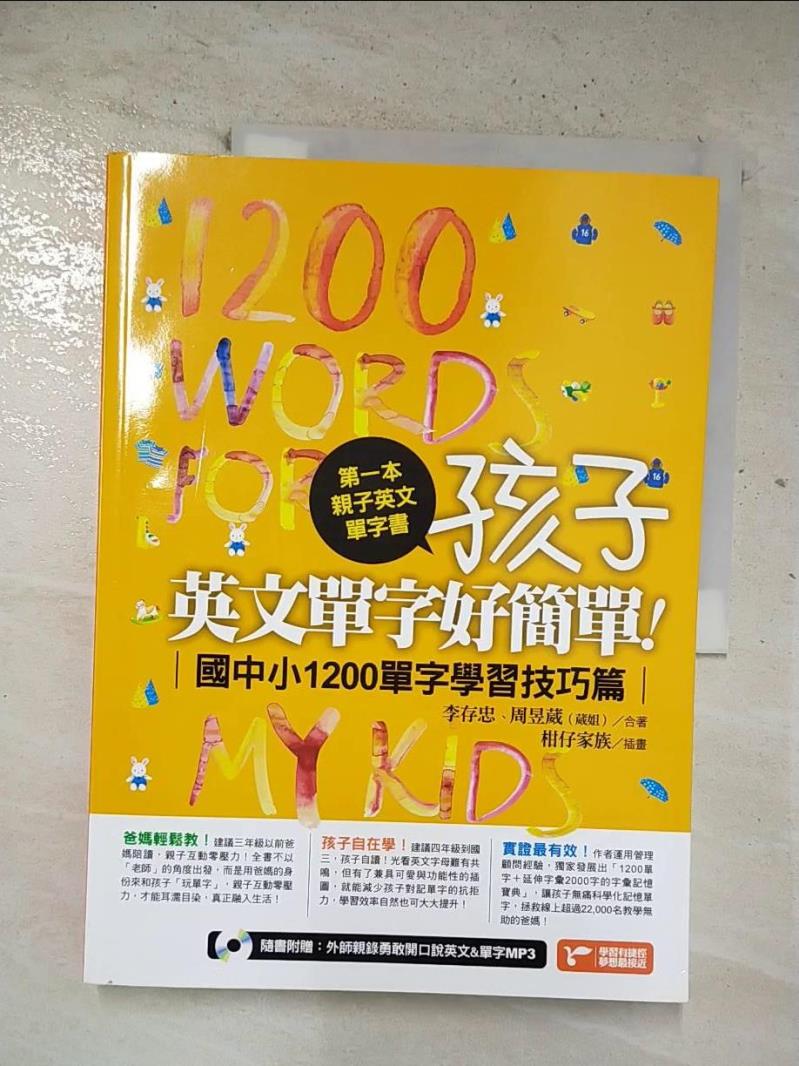 1200
WORDS
FOR
第一本
親子英文
單字書
孩子
英文單字好簡單!
國中小1200單字學習技巧篇
李存忠、周昱葳(葳姐)/合著
柑仔家族/插畫
MY KIDS
爸媽輕鬆教!建議三年級以前爸
媽陪讀,親子互動零壓力!全書不以
「老師」的角度出發,而是用爸媽的身
份來和孩子「玩單字」,親子互動零壓
力,才能耳濡目染,真正融入生活!
孩子自在學!建議四年級到國
三,孩子自讀!光看英文字母難有共
鳴,但有了兼具可愛與功能性的插
圖,就能減少孩子對記單字的抗拒
力,學習效率自然也可大大提升!
實證最有效!作者運用管理
顧問經驗,獨家發展出「1200單
字+延伸字彙2000字的字彙記憶
寶典」,讓孩子無痛科學化記憶單
字,拯救線上超過22,000名教學無
助的爸媽!
隨書附贈:外師親錄勇敢開口說英文&單字MP3
學習有捷徑
夢想最接近